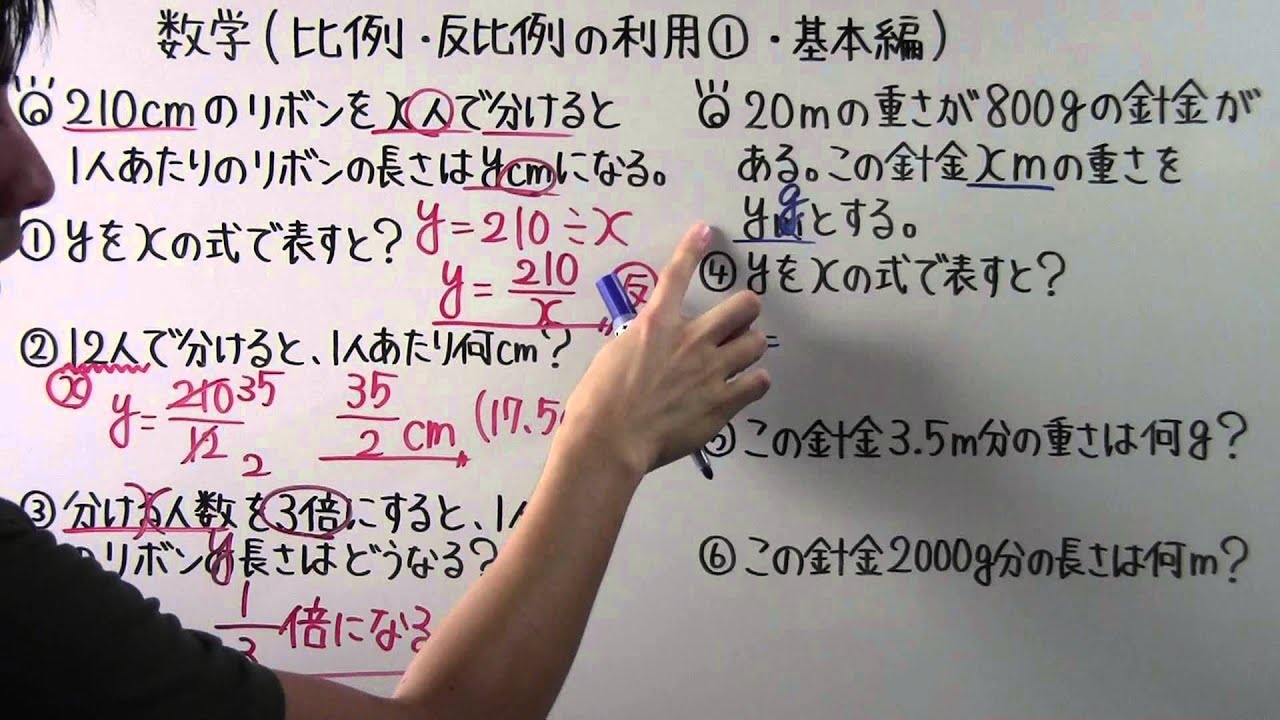 数学(比例・反比例の利用①・基本編)
210cmのリボンをx人で分けると
1人あたりのリボンの長さはycmになる。
①yをxの式で表すと?
y=210÷x
y=210/x
反
②12人で分けると、1人あたり何cm?
x
y=210/12
35
2
35/2 cm (17.5
③分ける人数を3倍にすると、1
x
リボン 長さはどうなる?
y
1/3倍になる
20mの重さが800gの針金が
ある。この針金xmの重さを
ygとする。
④yをxの式で表すと?
=
この針金3.5m分の重さは何g?
⑥この針金2000g分の長さは何m?